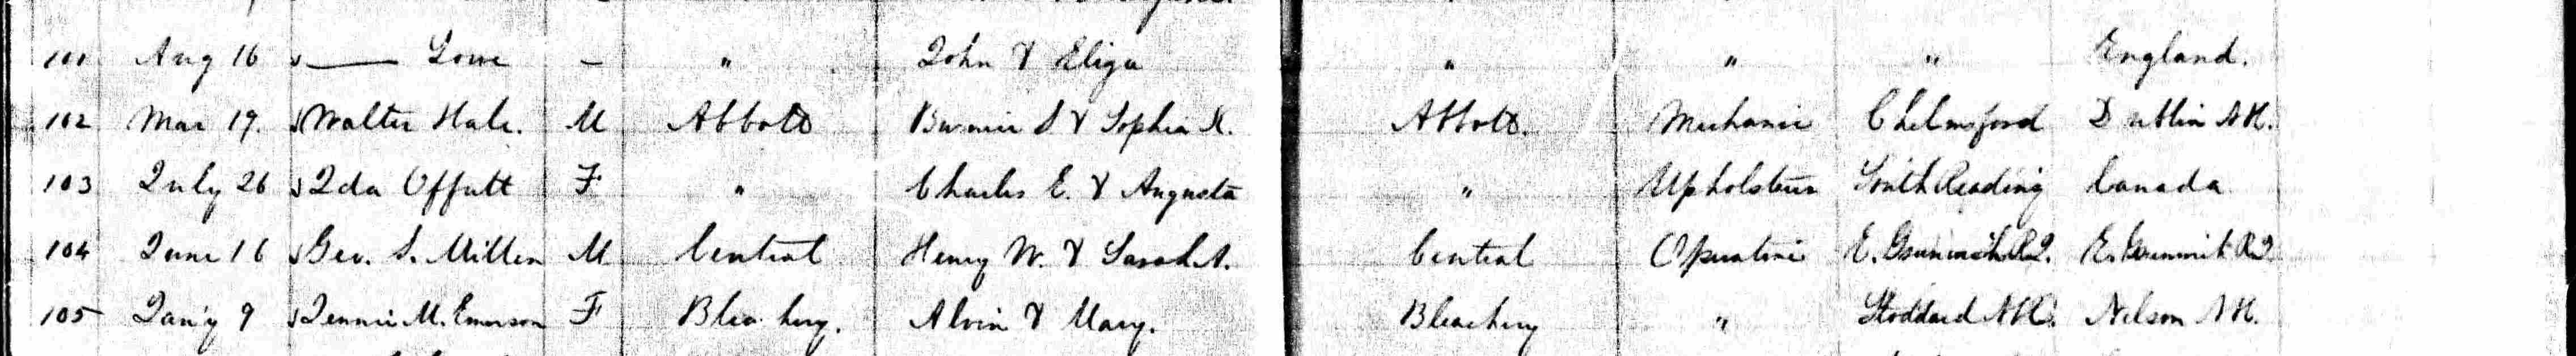 101 Aug 16 —— Lowe — " John & Eliza " " " England.
102 Mar 19. Walter Hale. M Abbott S. & Sophia Abbott. Mechanic Chelmsford Dublin N.H.
103 July 26 Ida Offutt F " Charles E. & Augusta " Upholsterer South Reading Canada
104 June 16 Geo. S. Miller M Central Henry W. & Sarah A. Central Operative E. Greenwich R.I. E. Greenwich R.I.
105 Jan'y 9 Jennie M. Emerson F Bleachery. Alvin & Mary. Bleachery " Stoddard N.H. Nelson N.H.